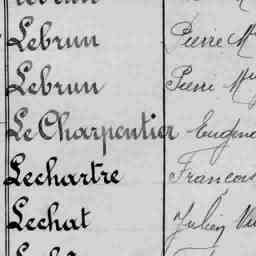 Lebrun Pierre M
Lebrun Pierre M
Le Charpentier Eugène
Lechartre François
Lechat Julien